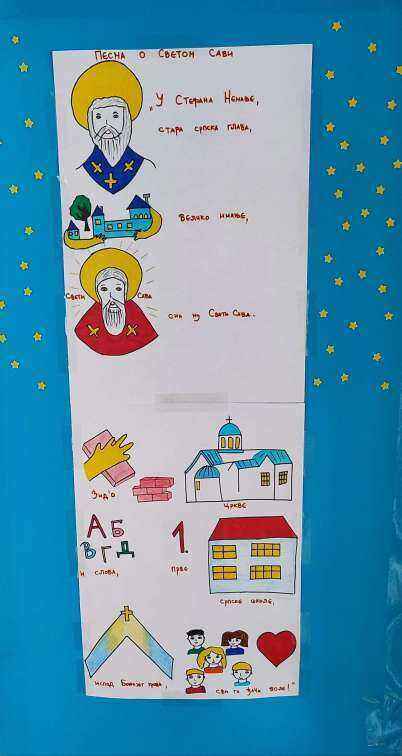 Песма о Светом Сави
„У Стефана Немање,
стара српска глава,
велико имање,
Свети Сава
син му Свети Сава.
Зид'о
цркве
А Б
В Г Д
и слова,
1.
прве
српске школе,
испод Божијег крова,
сви га ђаци воле!"